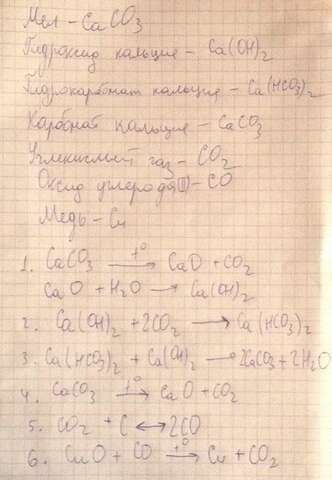 Мел - CaCO3
Гидроксид кальция - Ca(OH)2
Гидрокарбонат кальция - Ca(HCO3)2
Карбонат кальция - CaCO3
Углекислый газ - CO2
Оксид углерода(II) - CO
Медь - Cu
1. CaCO3 →(t°) CaO + CO2
CaO + H2O → Ca(OH)2
2. Ca(OH)2 + 2CO2 → Ca(HCO3)2
3. Ca(HCO3)2 + Ca(OH)2 → 2CaCO3 + 2H2O
4. CaCO3 →(t°) CaO + CO2
5. CO2 + C ↔ 2CO
6. CuO + CO →(t°) Cu + CO2